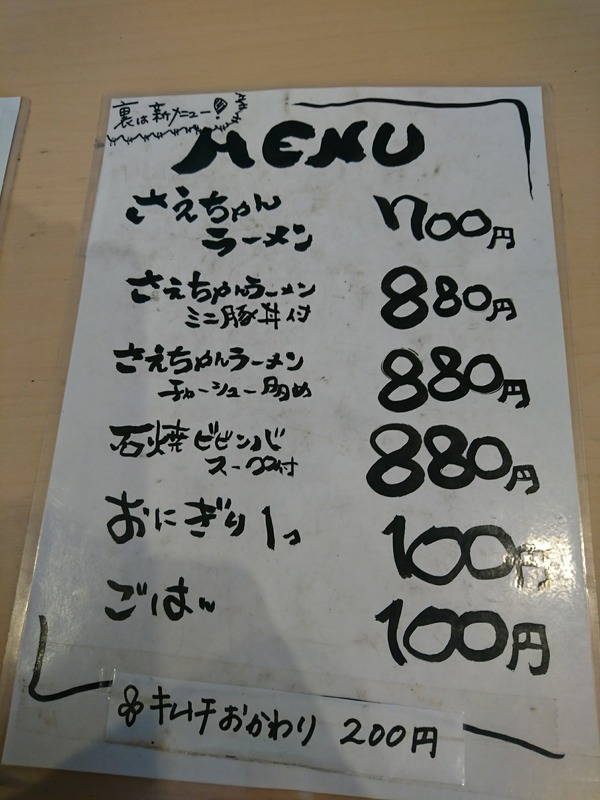 裏は新メニュー!
MENU
さえちゃん
ラーメン 700円
さえちゃんラーメン
ミニ豚丼付 880円
さえちゃんラーメン
チャーシュー多め 880円
石焼ビビンバ
スープ付 880円
おにぎり1コ 100円
ごはん 100円
キムチおかわり 200円